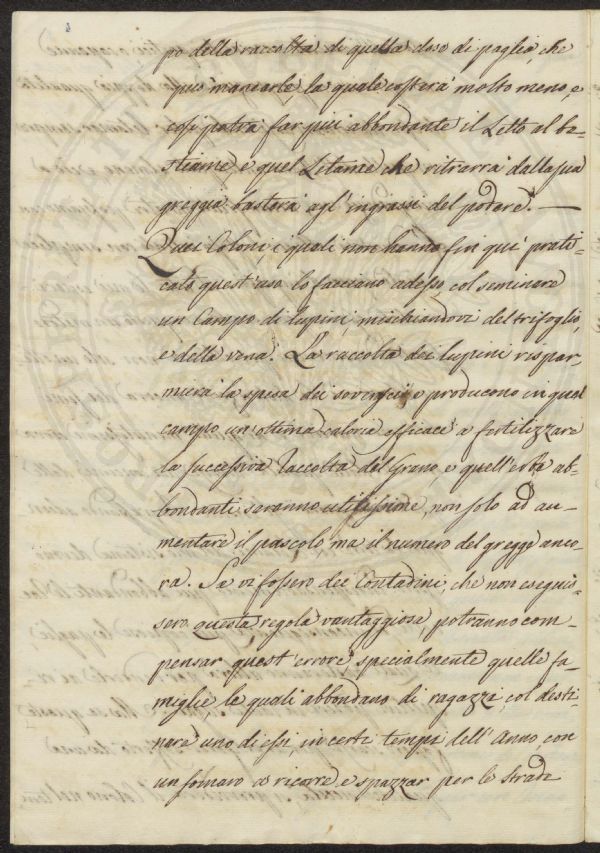 po della raccolta di quella dose di paglia, che
può mancarle, la quale costerà molto meno, e
così potrà far più abbondante il Letto al be-
stiame, e quel Letame che ritrarrà dalla sua
greggia basterà agl'ingrassi del podere. —
Quei Coloni, i quali non hanno fin quì prati-
cato quest'uso lo facciano adesso col seminare
un Campo di lupini, mischiandovi del trifoglio,
e della vena. La raccolta dei lupini rispar-
mierà la spesa dei sovesci, e producono in quel
campo un'ottima caloria efficace a fertilizzare
la successiva raccolta del Grano, e quell'erbe ab-
bondanti saranno utilissime, non solo ad au-
mentare il pascolo, ma il numero del gregge anco-
ra. Se vi fossero dei Contadini, che non eseguis-
sero questa regola vantaggiosa, potranno com-
pensar quest'errore, specialmente quelle fa-
miglie, le quali abbondano di ragazzi col desti-
nare uno di essi, in certi tempi dell'Anno, con
un somaro a ricorre, e spazzar per le Strade